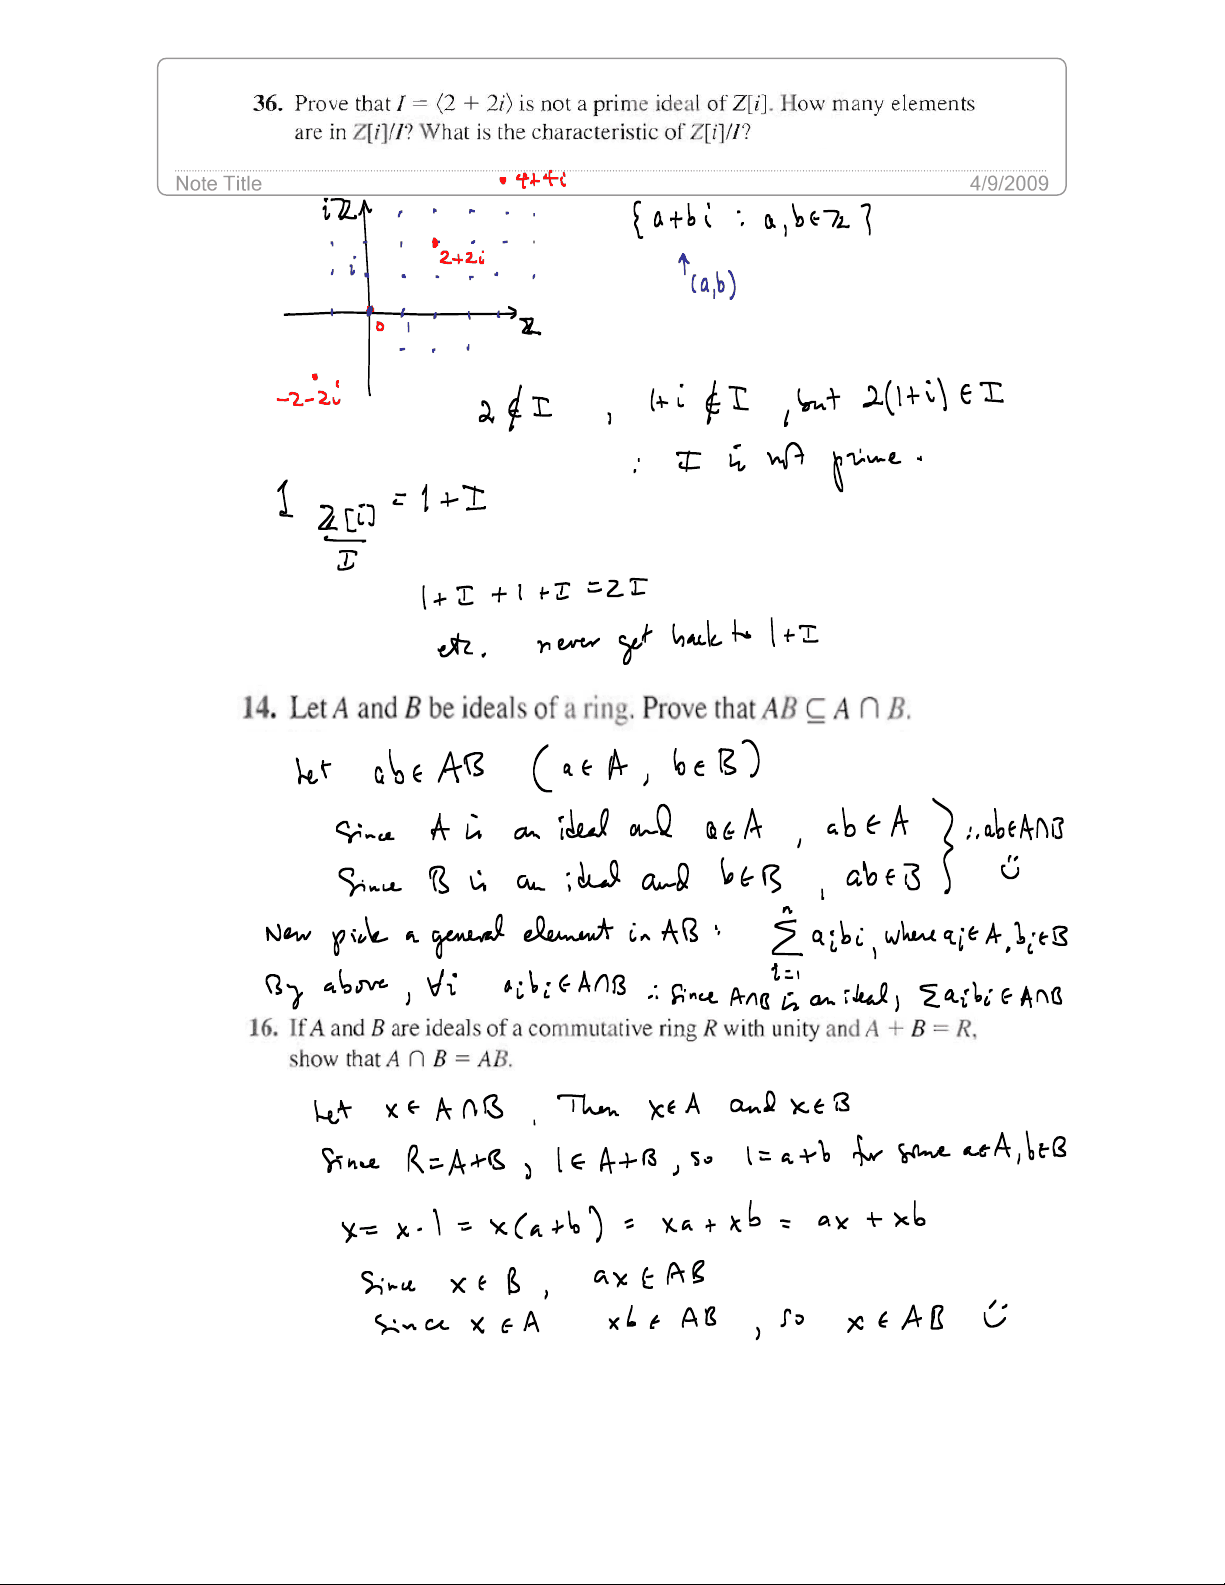 36. Prove that I = ⟨2 + 2i⟩ is not a prime ideal of Z[i]. How many elements
are in Z[i]/I? What is the characteristic of Z[i]/I?
Note Title
4/9/2009
• 4+4i
iℤ
{a+bi : a,b∈ℤ}
2+2i
i
↑(a,b)
0 1
ℤ
-2-2i
2∉I , 1+i ∉ I , but 2(1+i) ∈ I
∴ I is not prime.
1 ℤ[i]/I = 1+I
1+I + 1+I = 2I
etc. never get back to 1+I
14. Let A and B be ideals of a ring. Prove that AB ⊆ A ∩ B.
Let ab∈AB (a∈A, b∈B)
Since A is an ideal and a∈A , ab∈A } ∴ ab∈A∩B
Since B is an ideal and b∈B , ab∈B ☺
Now pick a general element in AB: ∑ᵢ₌₁ⁿ aᵢbᵢ, where aᵢ∈A, bᵢ∈B
By above, ∀i aᵢbᵢ∈A∩B ∴ Since A∩B is an ideal, ∑aᵢbᵢ∈A∩B
16. If A and B are ideals of a commutative ring R with unity and A + B = R,
show that A ∩ B = AB.
Let x∈A∩B. Then x∈A and x∈B
Since R=A+B, 1∈A+B, so 1=a+b for some a∈A, b∈B
x= x·1 = x(a+b) = xa+xb = ax + xb
Since x∈B, ax∈AB
Since x∈A xb∈AB, so x∈AB ☺